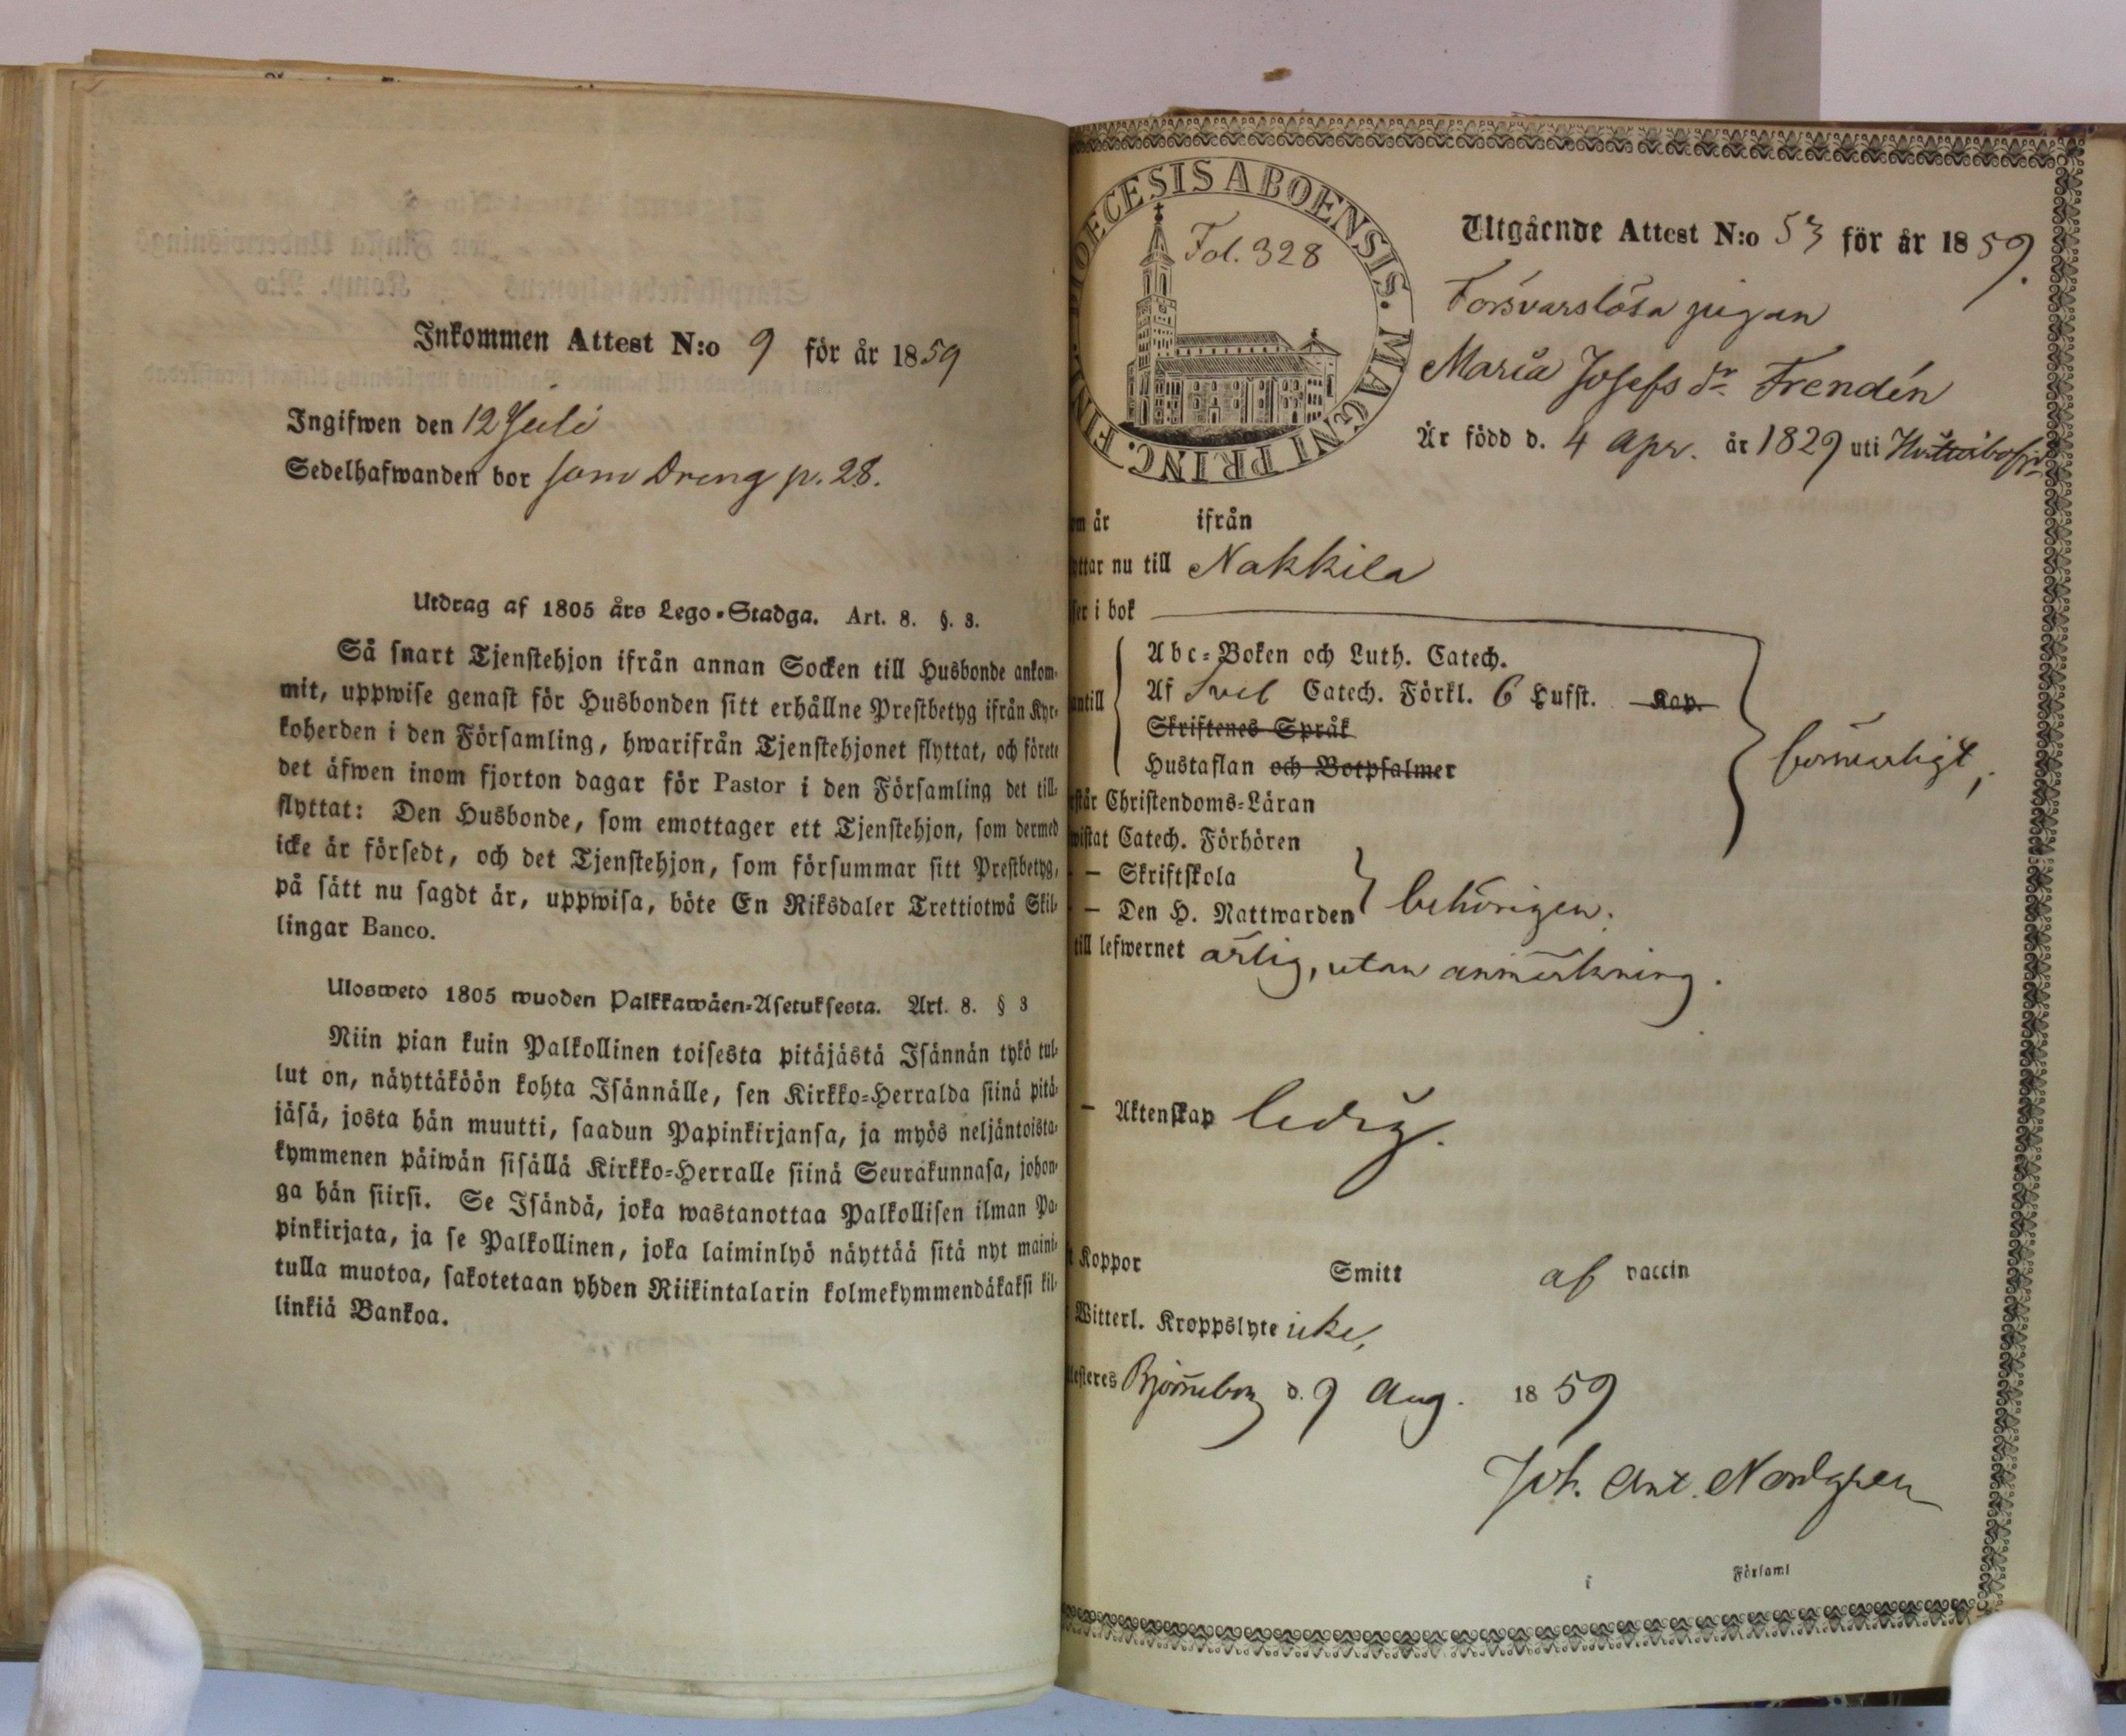 Inkommen Attest N:o 9 för år 1859
Ingifwen den 12 Juli
Sedelhafwanden bor som Dreng p. 28.
Utdrag af 1805 års Lego-Stadga. Art. 8. §. 3.
Så snart Tjenstehjon ifrån annan Socken till Husbonde ankom-
mit, uppwise genast för Husbonden sitt erhållne Prestbetyg ifrån Kyr-
koherden i den Församling, hwarifrån Tjenstehjonet flyttat, och förete
det äfwen inom fjorton dagar för Pastor i den Församling det till-
flyttat: Den Husbonde, som emottager ett Tjenstehjon, som dermed
icke är försedt, och det Tjenstehjon, som försummar sitt Prestbetyg,
på sätt nu sagdt är, uppwisa, böte En Riksdaler Trettiotwå Skil-
lingar Banco.
Ulosweto 1805 wuoden Palkkawäen-Asetuksesta. Art. 8. § 3
Niin pian kuin Palkollinen toisesta pitäjästä Isännän tykö tul-
lut on, näyttäköön kohta Isännälle, sen Kirkko-Herralda siinä pitä-
jäsä, josta hän muutti, saadun Papinkirjansa, ja myös neljäntoista-
kymmenen päiwän sisällä Kirkko-Herralle siinä Seurakunnasa, johon-
ga hän siirsi. Se Isändä, joka wastanottaa Palkollisen ilman Pa-
pinkirjata, ja se Palkollinen, joka laiminlyö näyttää sitä nyt maini-
tulla muotoa, sakotetaan yhden Riikintalarin kolmekymmendäkaksi kil-
linkiä Bankoa.
DIOECESIS ABOENSIS. MAGNI PRINC. FINL.
Fol. 328
Utgående Attest N:o 53 för år 1859.
Försvarslösa pigan
Maria Josefs dr Frendén
Är född d. 4 Apr. år 1829 uti
om år ifrån
ttar nu till Nakkila
ser i bok
antill
Abc-Boken och Luth. Catech.
Af Sveb Catech. Förkl. 6 Hufst. Kap.
Skriftenes Språk
Hustaflan och Botpsalmer
försvarligt,
står Christendoms-Läran
wistat Catech. Förhören
— Skriftskola
— Den H. Nattwarden behörigen.
till lefwernet ärlig, utan anmärkning.
— Äktenskap ledig.
Koppor Smitt af vaccin
Witterl. Kroppslyte icke,
testeres Björneborg d. 9 Aug. 1859
Joh. Ant. Nordgren
i Församl